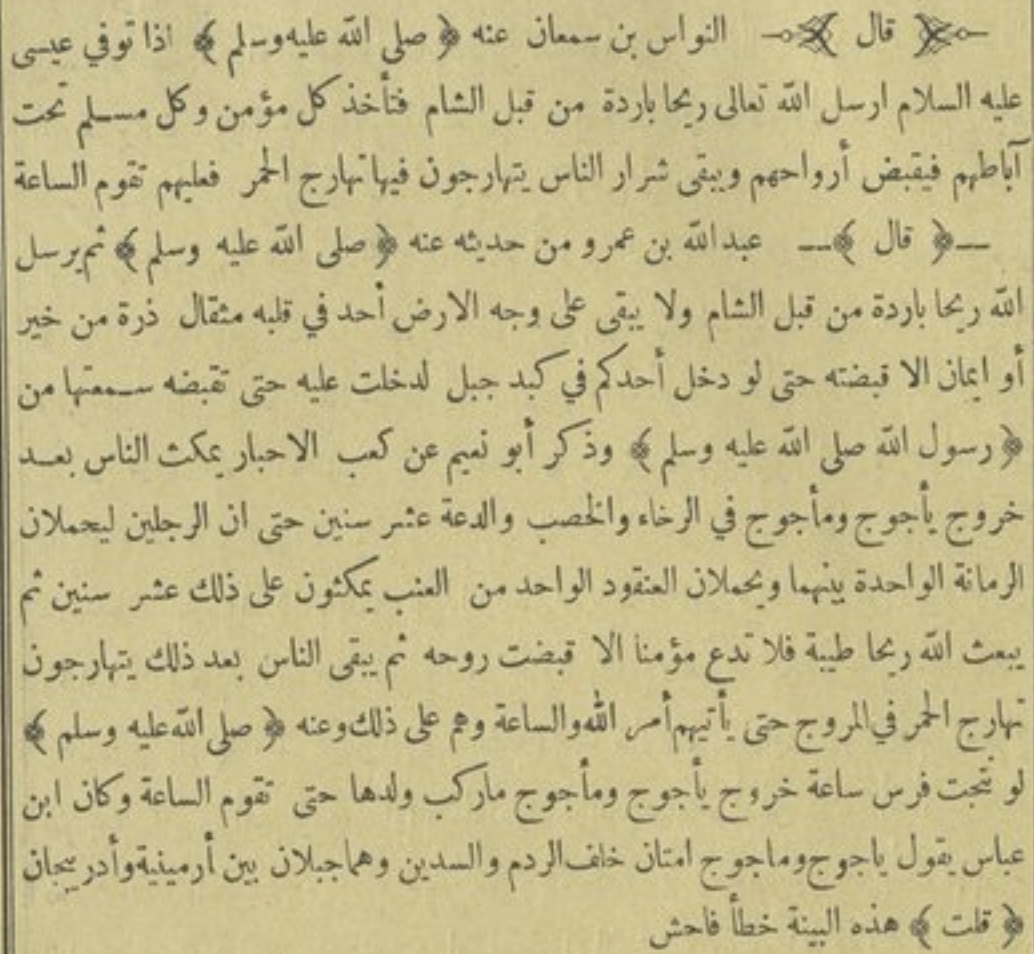 ﴿ قال ﴾ النواس بن سمعان عنه ﴿ صلى الله عليه وسلم ﴾ اذا توفي عيسى
عليه السلام ارسل الله تعالى ريحا باردة من قبل الشام فتأخذ كل مؤمن وكل مسلم تحت
آباطهم فيقبض أرواحهم ويبقى شرار الناس يتهارجون فيها تهارج الحمر فعليهم تقوم الساعة
﴿ قال ﴾ عبد الله بن عمرو من حديثه عنه ﴿ صلى الله عليه وسلم ﴾ ثم يرسل
الله ريحا باردة من قبل الشام ولا يبقى على وجه الارض أحد في قلبه مثقال ذرة من خير
أو ايمان الا قبضته حتى لو دخل أحدكم في كبد جبل لدخلت عليه حتى تقبضه سمعتها من
﴿ رسول الله صلى الله عليه وسلم ﴾ وذكر أبو نعيم عن كعب الاحبار يمكث الناس بعد
خروج يأجوج ومأجوج في الرخاء والخصب والدعة عشر سنين حتى ان الرجلين ليحملان
الرمانة الواحدة بينهما ويحملان العنقود الواحد من العنب يمكثون على ذلك عشر سنين ثم
يبعث الله ريحا طيبة فلا تدع مؤمنا الا قبضت روحه ثم يبقى الناس بعد ذلك يتهارجون
تهارج الحمر في المروج حتى يأتيهم أمر الله والساعة وهم على ذلك وعنه ﴿ صلى الله عليه وسلم ﴾
لو نتجت فرس ساعة خروج يأجوج ومأجوج ماركب ولدها حتى تقوم الساعة وكان ابن
عباس يقول ياجوج وماجوج امتان خلف الردم والسدين وهما جبلان بين أرمينية وأدربيجان
﴿ قلت ﴾ هذه البينة خطأ فاحش